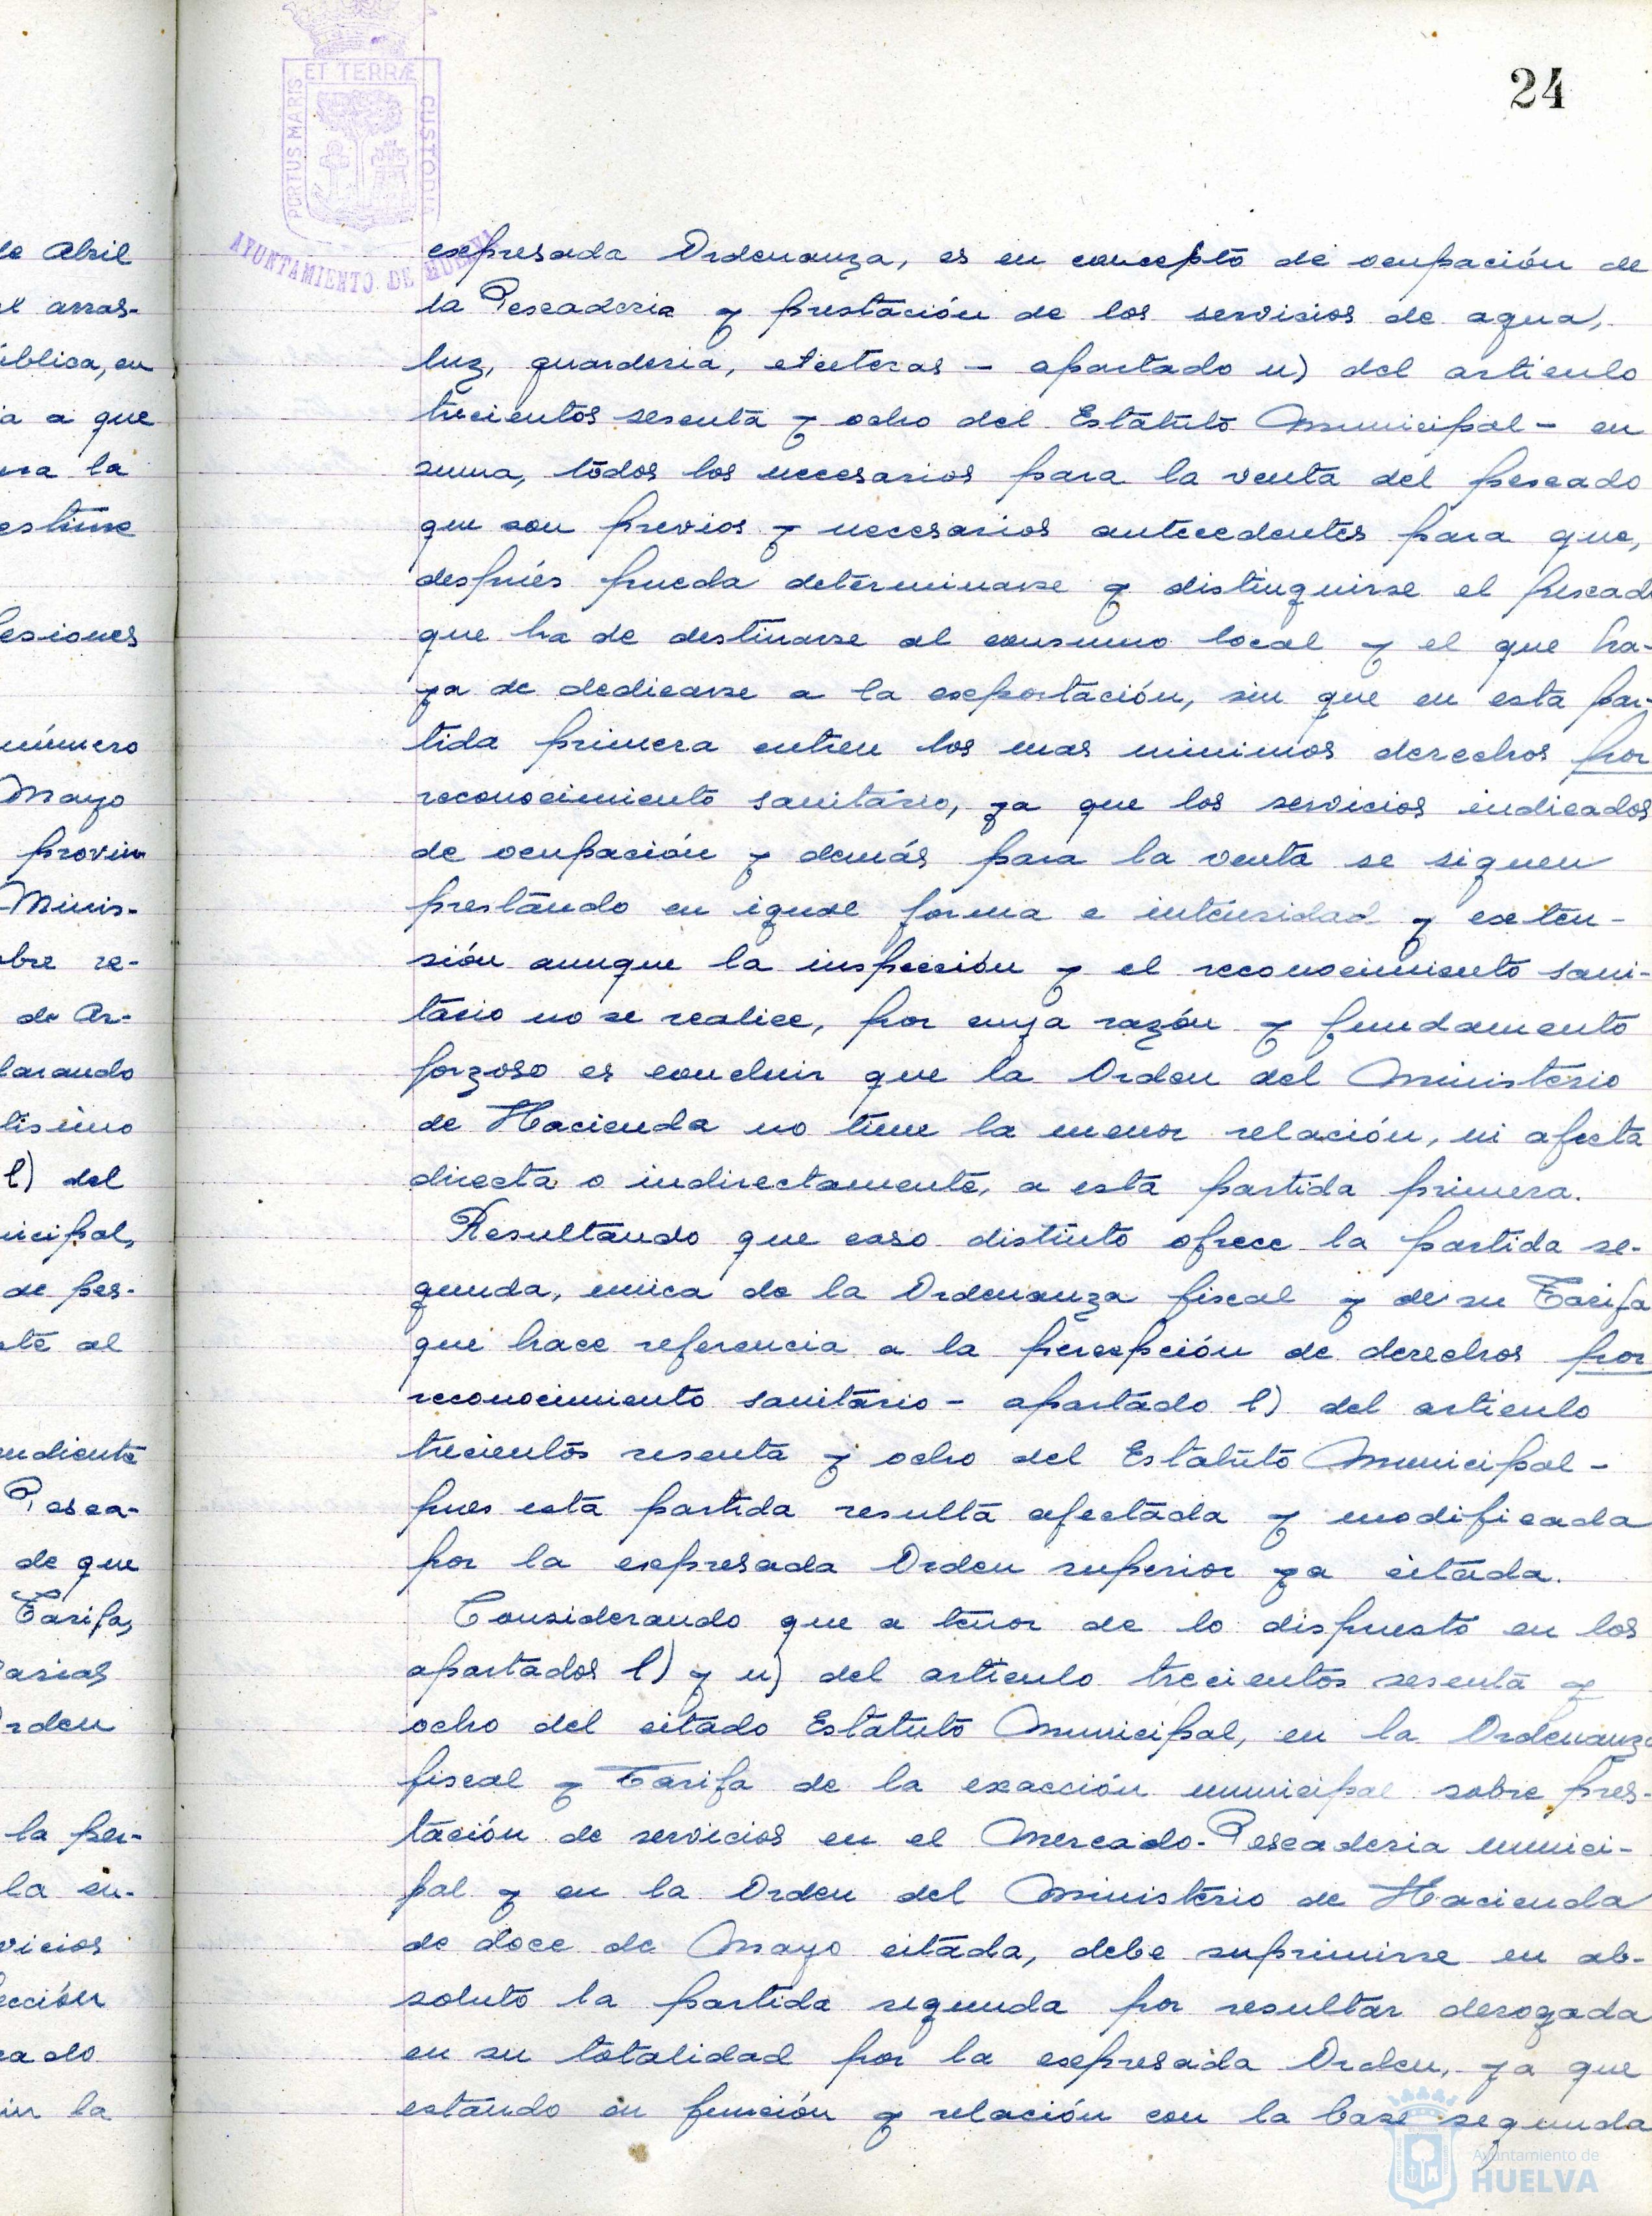 24
ET TERRÆ
PORTUS MARIS
CUSTODIA
AYUNTAMIENTO DE HUELVA
expresada Ordenanza, es en concepto de ocupación de
la Pescaderia y prestación de los servicios de agua,
luz, guarderia, etcéteras - apartado u) del articulo
trecientos sesenta y ocho del Estatuto Municipal - en
suma, todos los necesarios para la venta del pescado
que son previos y necesarios antecedentes para que,
después pueda determinarse y distinguirse el pescad
que ha de destinarse al consumo local y el que ha-
ya de dedicarse a la exportación, sin que en esta par-
tida primera entren los mas minimos derechos por
reconocimiento sanitario, ya que los servicios indicados
de ocupación y demás para la venta se siguen
prestando en igual forma e intensidad y exten-
sión aunque la inspección y el reconocimiento sani-
tario no se realice, por cuya razón y fundamento
forzoso es concluir que la Orden del Ministerio
de Hacienda no tiene la menor relación, ni afecta
directa o indirectamente, a esta partida primera.
Resultando que caso distinto ofrece la partida se-
gunda, unica de la Ordenanza fiscal y de su Tarifa
que hace referencia a la percepción de derechos por
reconocimiento sanitario - apartado l) del articulo
trecientos sesenta y ocho del Estatuto Municipal -
pues esta partida resulta afectada y modificada
por la expresada Orden superior ya citada.
Considerando que a tenor de lo dispuesto en los
apartados l) y u) del articulo trecientos sesenta y
ocho del citado Estatuto Municipal, en la Ordenanza
fiscal y Tarifa de la exacción municipal sobre pres-
tación de servicios en el Mercado-Pescaderia munici-
pal y en la Orden del Ministerio de Hacienda
de doce de Mayo citada, debe suprimirse en ab-
soluto la partida segunda por resultar derogada
en su totalidad por la expresada Orden, ya que
estando en función y relación con la base segunda
de Abril
arras-
ública, en
a a que
la
estime
esiones
número
Mayo
provin
Minis-
bre re-
de Ar-
larando
lisimo
l) del
nicipal,
de pes-
te al
endiente
Pesca-
de que
Tarifa,
arias
rden
la per-
la in-
vicios
ección
cado
in la
Ayuntamiento de
HUELVA